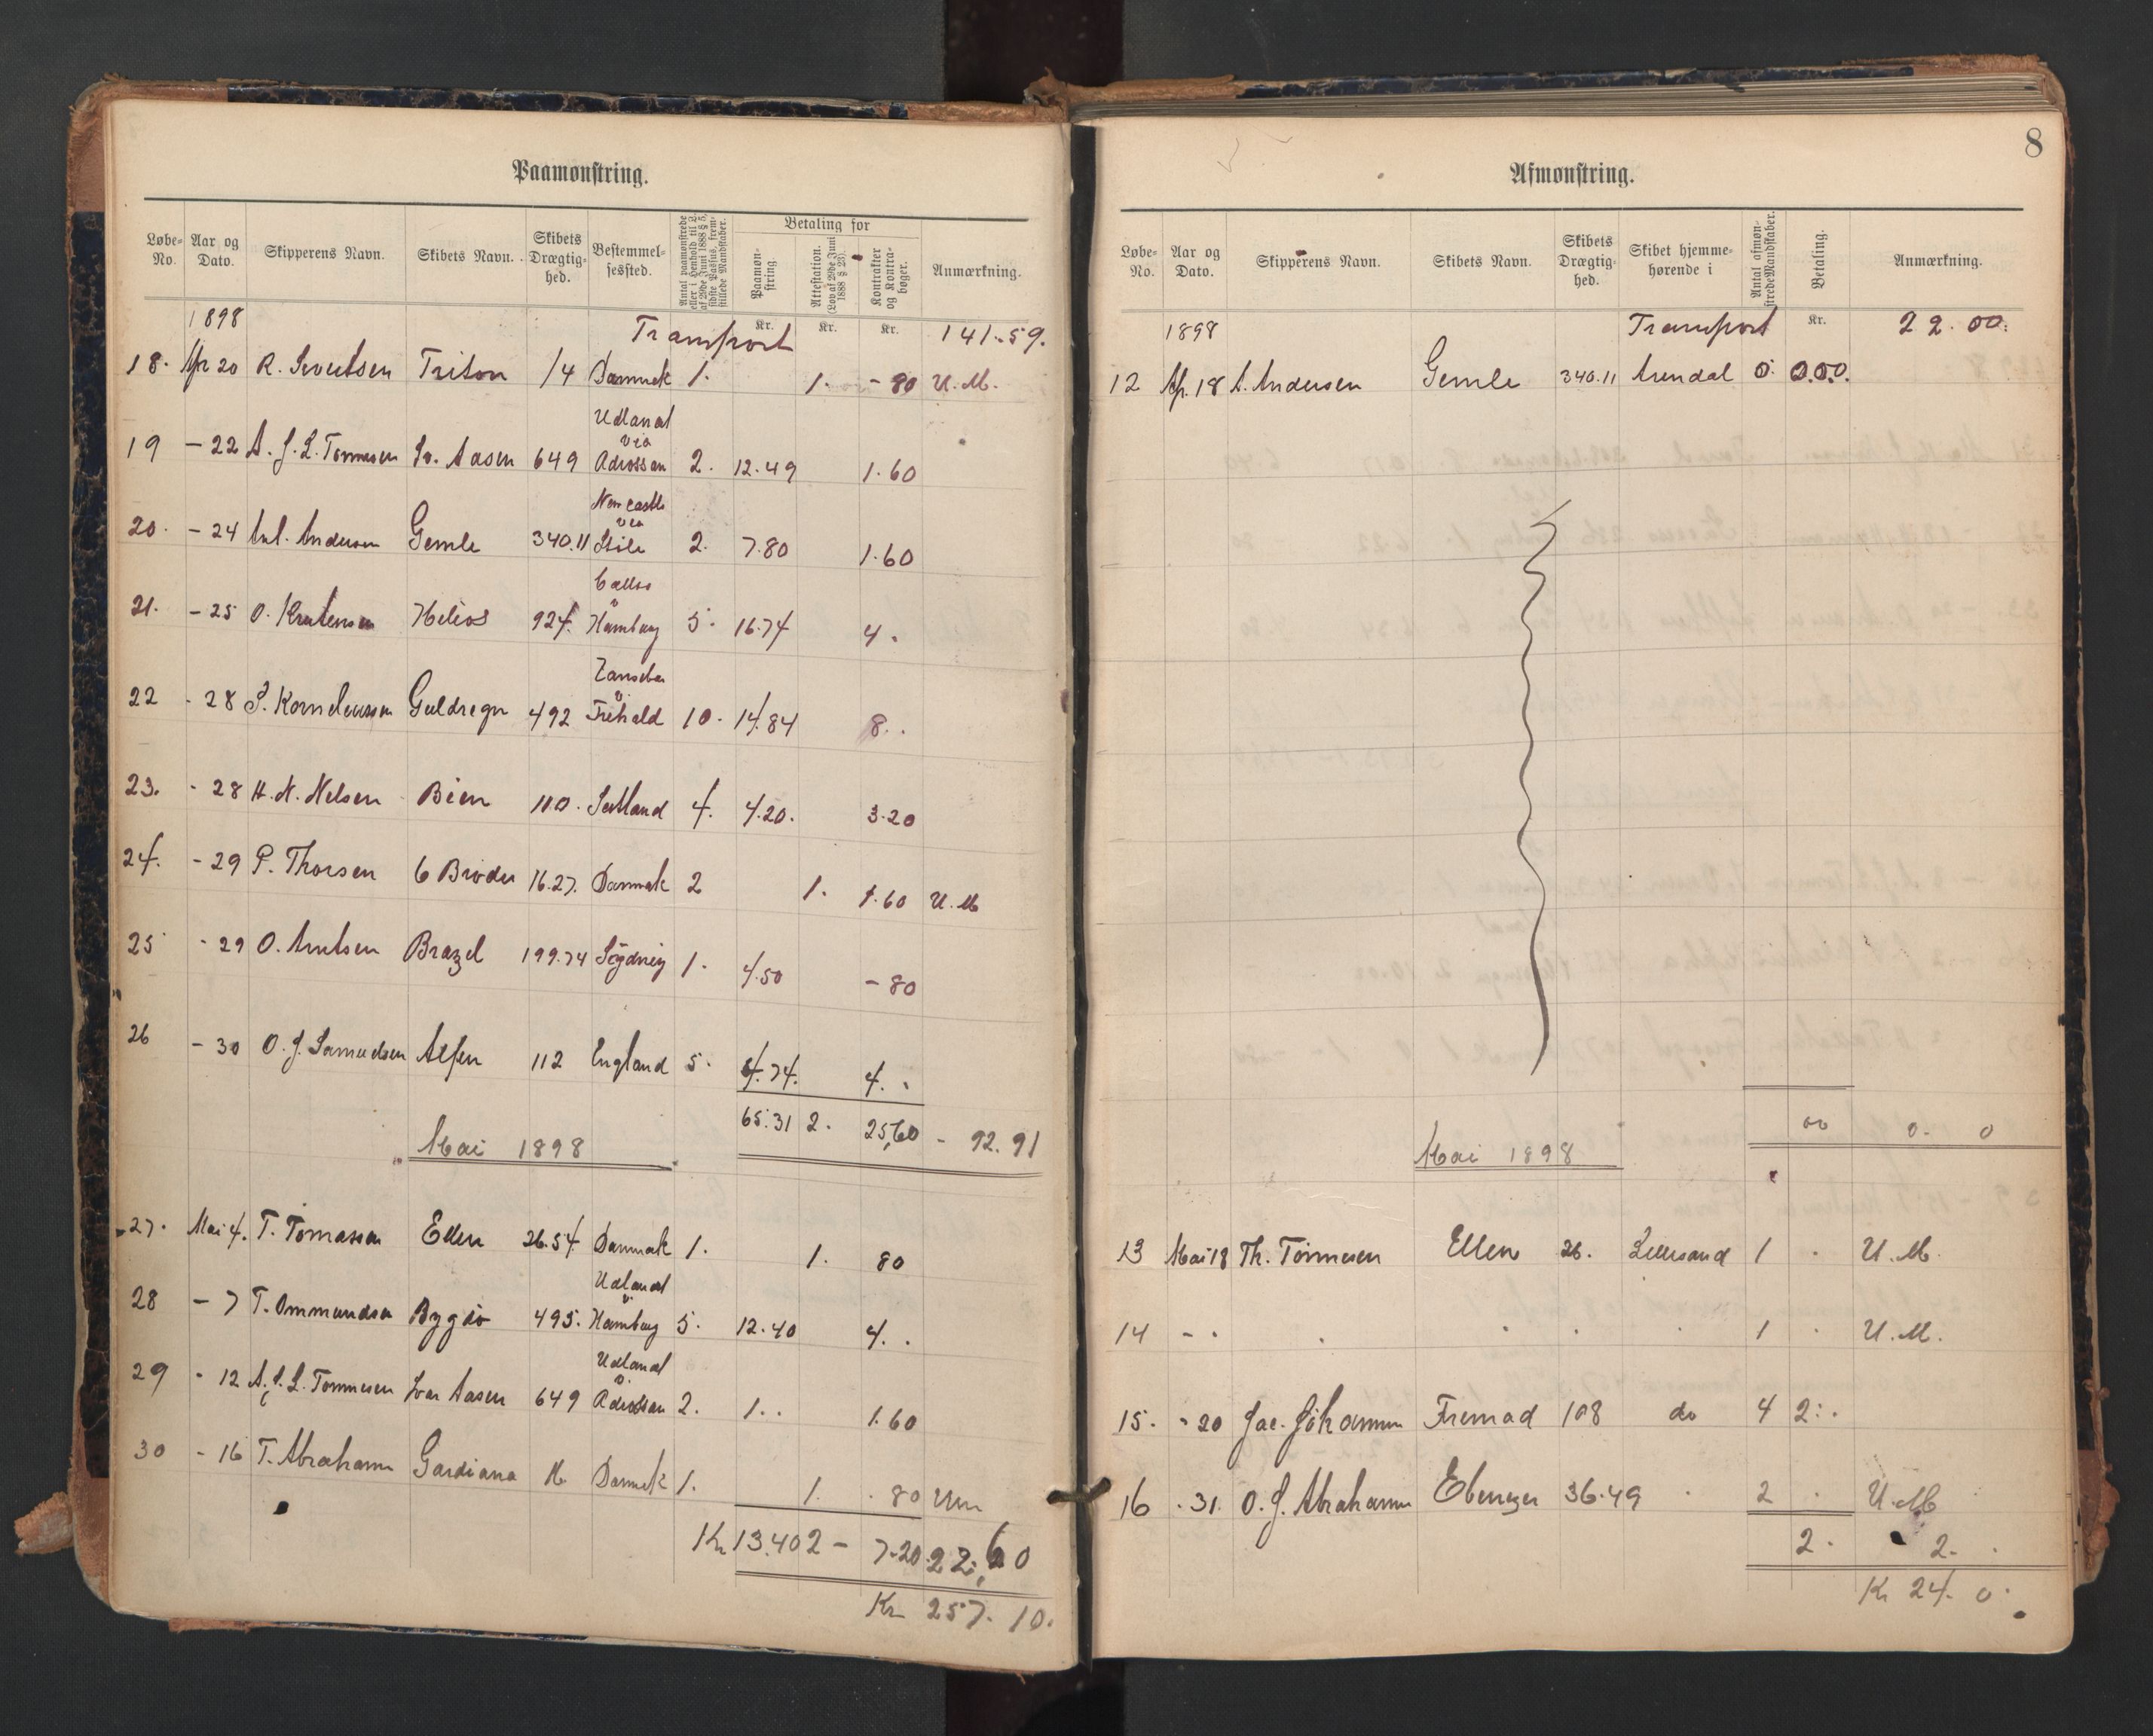 Paamonstring.
Løbe-No. Aar og Dato. Skipperens Navn. Skibets Navn. Skibets Drægtig-hed. Bestemmel-sessted. Antal paamonstrede eller i Henhold til L. af 29de Juni 1888 § 5, sidste Passus, frem-stillede Mandskaber. Betaling for Paamon-string. Attestation. (Lov af 29de Juni 1888 § 23). Kontrakter og Kontra-bøger. Anmærkning.
Kr. Kr. Kr.
1898 Transport 141.59.
18. Apr 20 R. Sivertsen Triton 14 Danmek 1. 1. - 80 U.M.
19 - 22 A. J. L. Tønnesen Iv. Aasen 649 Udland via Adrossan 2. 12.49 1.60
20. - 24 Ant. Andersen Gemle 340.11 Newcastle via 2. 7.80 1.60
21. - 25 O. Helios 924. Hamburg 5. 16.74 4.
22 - 28 S. Korneliussen Guldregn 492 10. 14.84 8..
23. - 28 H. N. Nelsen Bien 110. 4. 4.20. 3.20
24. - 29 P. Thorsen 6 Brødr 16.27. Danmek 2 1. 1.60 U.M
25 - 29 O. Arntsen Brazel 199.74 1. 4.50 - 80
26 - 30 O. J. Samuelsen Alfen 112 England 5. 4.74. 4..
65.31 2. 25,60 - 92.91
Mai 1898
27. Mai 4. T. Tømassen Ellen 26.54 Danmak 1. 1. 80
28 - 7 T. Ommundsen Bygdø 495. Udland v. Hamburg 5. 12.40 4..
29 - 12 A. J. L. Tønnesen Ivar Aasen 649 Udland v. Adrossan 2. 1.. 1.60
30 - 16 T. Abrahamn Gardiana 16 Danmek 1. 1. . 80 Um
Kr 13.40 2 - 7.20 22,60
Kr 257.10.
8
Afmonstring.
Løbe-No. Aar og Dato. Skipperens Navn. Skibets Navn. Skibets Drægtig-hed. Skibet hjemme-hørende i Antal afmon-strede Mandskaber. Betaling. Anmærkning.
Kr.
1898 Transport 22.00.
12 Ap. 18 A. Andersen Gemle 340.11 Arendal 0. 0.00.
00 0. 0
Mai 1898
13 Mai 18 Th. Tønnesen Ellen 26. Lillesand 1 . U.M.
14 - . . . . . 1 . U.M.
15. - 20 Jac. Johannsn Fremad 108 do 4 2:.
16 . 31. O. J. Abrahamn Ebenezer 36.49 . 2 . U.M
2. 2. .
Kr 24. 0.